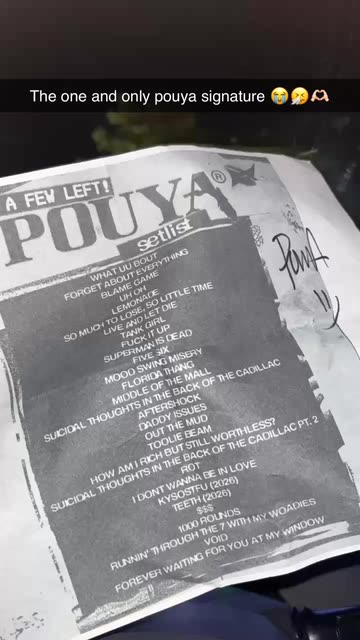 The one and only pouya signature 😭🤧🫶🏻
A FEW LEFT!
POUYA®
setlist
WHAT UU BOUT
FORGET ABOUT EVERYTHING
BLAME GAME
UH OH
LEMONADE
SO MUCH TO LOSE, SO LITTLE TIME
LIVE AND LET DIE
TANK GIRL
FUCK IT UP
SUPERMAN IS DEAD
FIVE SIX
MOOD SWING MISERY
FLORIDA THANG
MIDDLE OF THE MALL
SUICIDAL THOUGHTS IN THE BACK OF THE CADILLAC
AFTERSHOCK
DADDY ISSUES
OUT THE MUD
TOOLIE BEAM
HOW AM I RICH BUT STILL WORTHLESS?
SUICIDAL THOUGHTS IN THE BACK OF THE CADILLAC PT. 2
ROT
I DONT WANNA BE IN LOVE
KYSOSTFU (2026)
TEETH (2026)
$$$
1000 ROUNDS
RUNNIN' THROUGH THE 7 WITH MY WOADIES
VOID
FOREVER WAITING FOR YOU AT MY WINDOW
PouyA